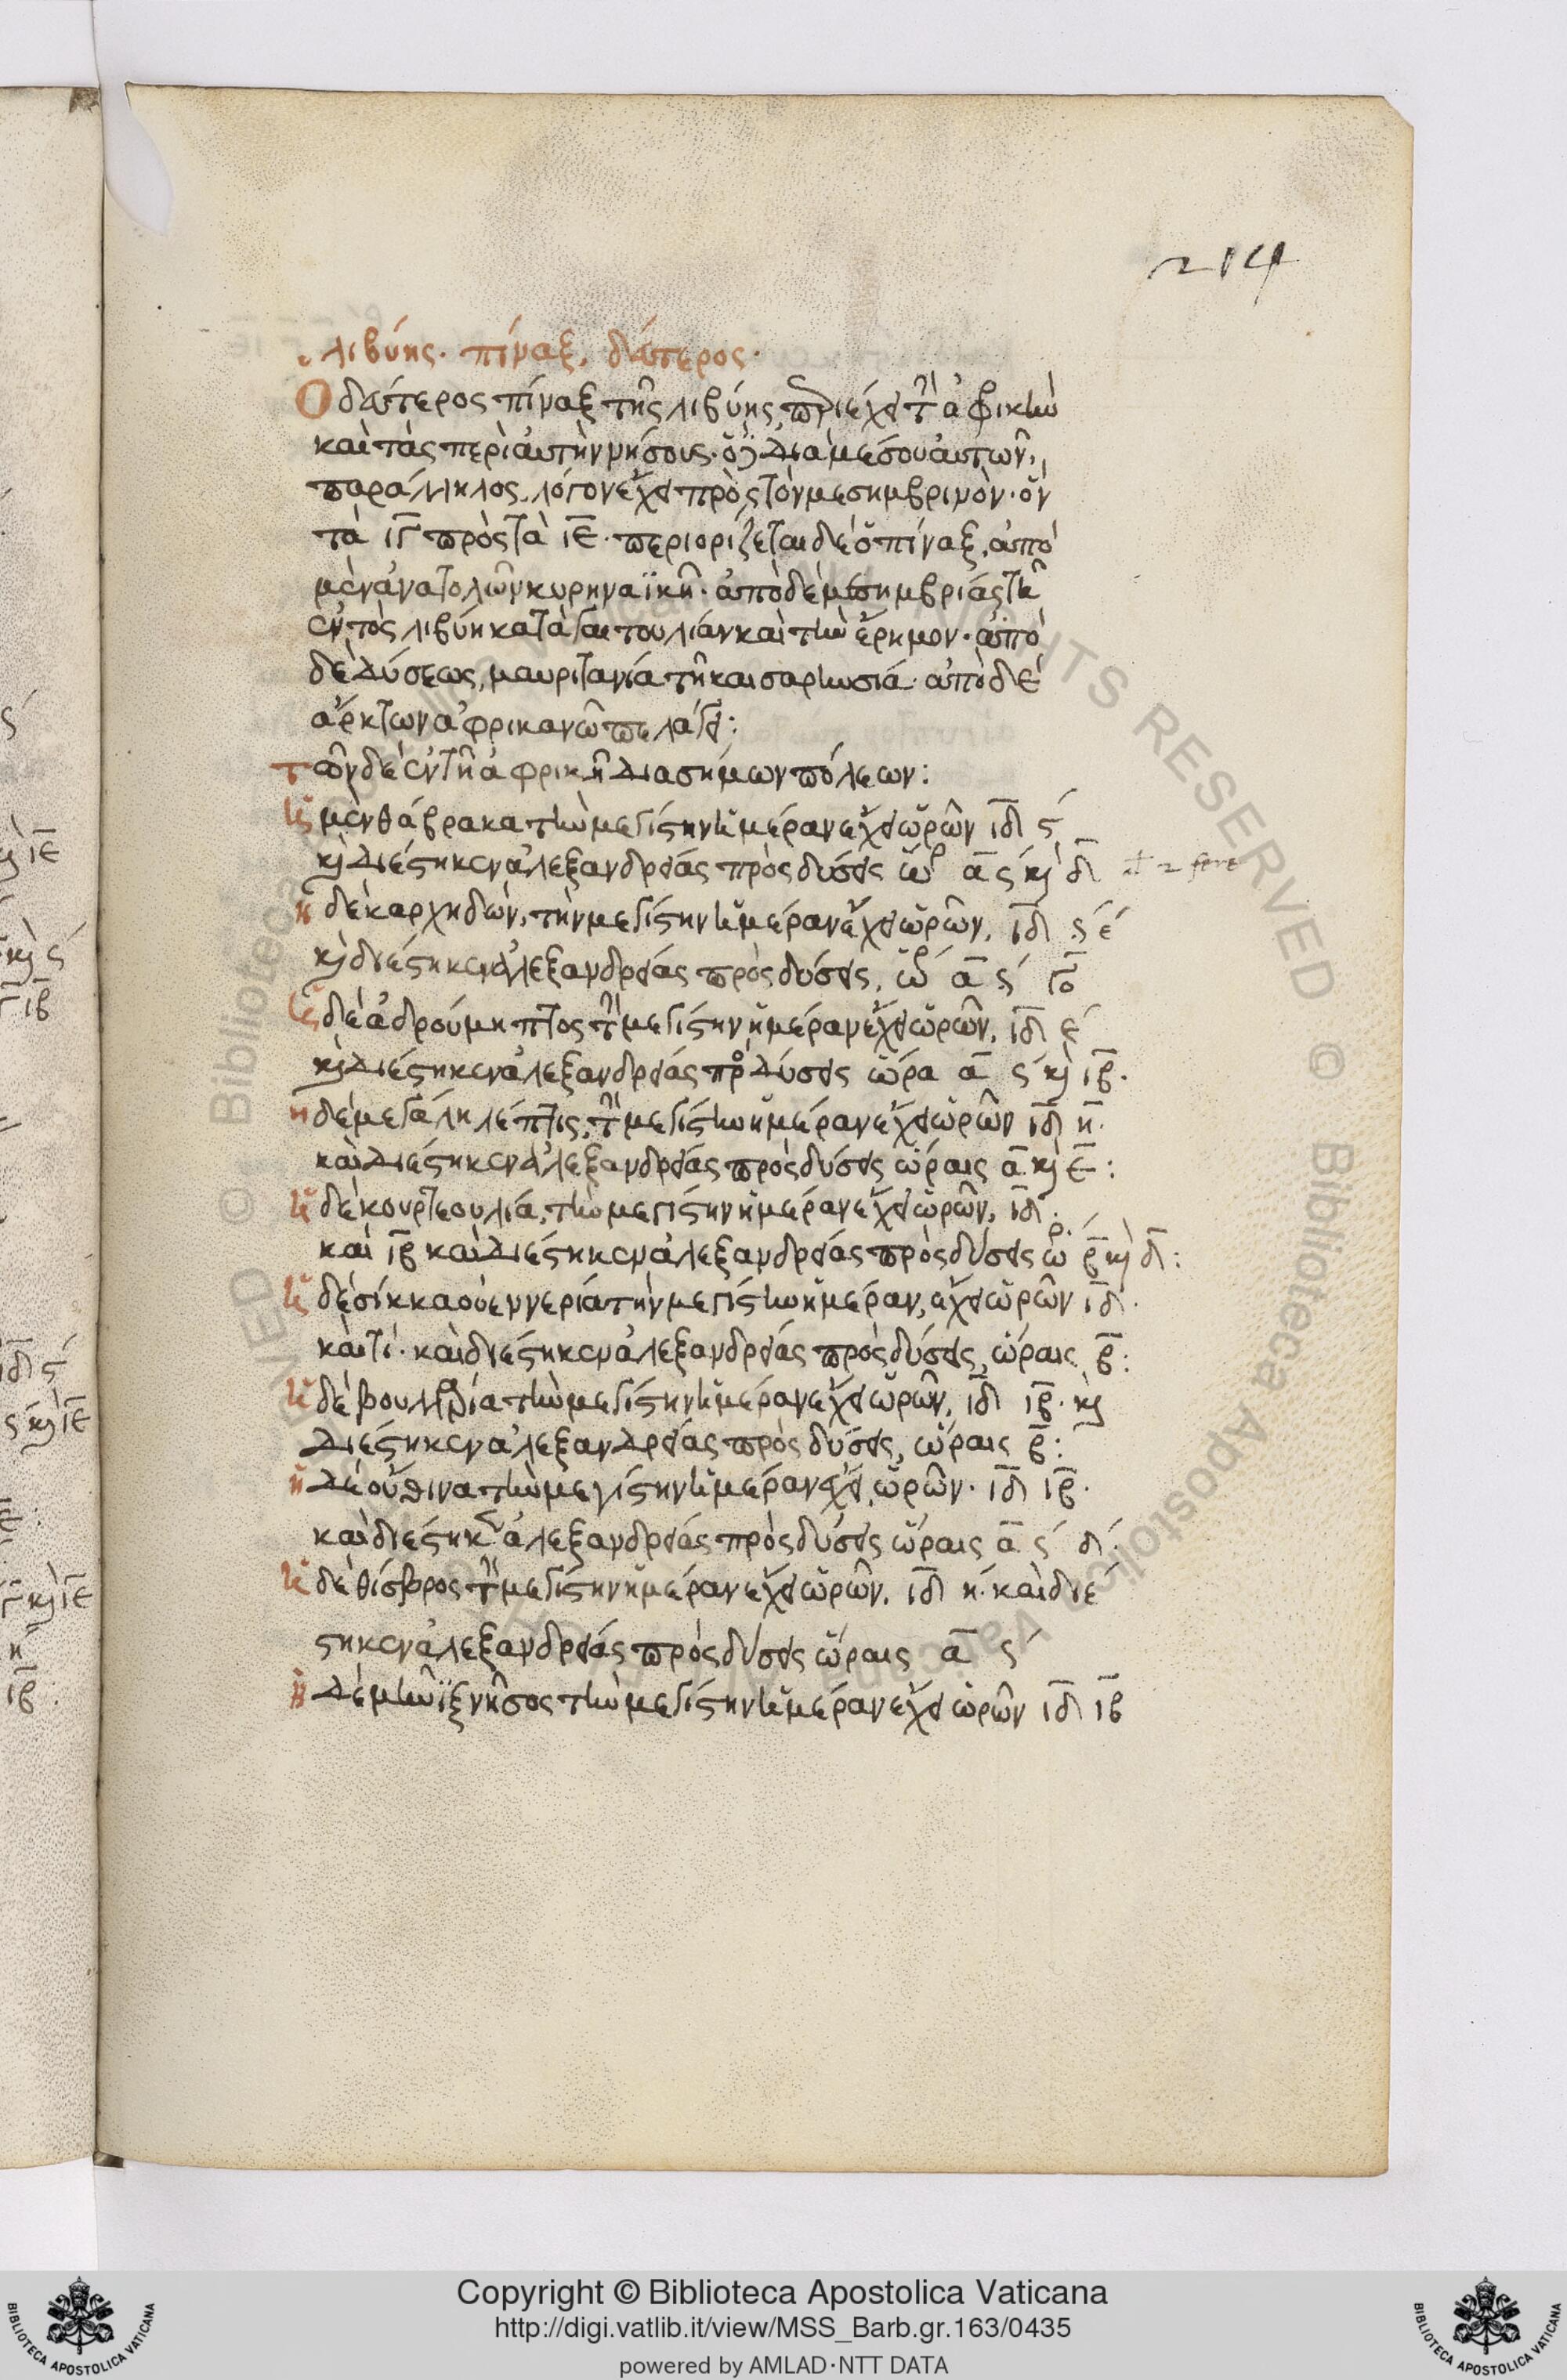 214
λιβύης. πίναξ. δεύτερος.
Ο δεύτερος πίναξ τῆς λιβύης, περιέχει τὴν ἀφρικὴν
καὶ τὰς περὶ αὐτὴν νήσους. ὁ δὲ διὰ μέσου αὐτῶν,
παράλληλος, λόγον ἔχει πρὸς τὸν μεσημβρινὸν. ὃν
τὰ ιγ πρὸς τὰ ιε. περιορίζεται δὲ ὁ πίναξ, ἀπὸ
μὲν ἀνατολῶν κυρηναϊκῆ. ἀπὸ δὲ μεσημβρίας τῆ
ἐντὸς λιβύη κατὰ γαιτουλίαν καὶ τὴν ἔρημον. ἀπὸ
δὲ δύσεως, μαυριτανία τῆ καισαρηνσία. ἀπὸ δὲ
ἄρκτων ἀφρικανῶ πελάγει:
τῶν δὲ ἐν τῆ ἀφρικῆ διασήμων πόλεων:
ἡ μὲν θάβρακα τὴν μεγίστην ἡμέραν ἔχει ὡρῶν ιδ ϛ
καὶ διέστηκεν ἀλεξανδρείας πρὸς δύσεις ὡρ α ϛ καὶ δ
ἡ δὲ καρχηδών, τὴν μεγίστην ἡμέραν ἔχει ὡρῶν, ιδ ϛ ε
καὶ διέστηκεν ἀλεξανδρείας πρὸς δύσεις, ὡρ α ϛ γο
ἡ δὲ ἀδρούμηττος τὴν μεγίστην ἡμέραν ἔχει ὡρῶν, ιδ ε
καὶ διέστηκεν ἀλεξανδρείας πρὸς δύσεις ὥρα α ϛ καὶ ιβ.
ἡ δὲ μεγάλη λέπτις, τὴν μεγίστην ἡμέραν ἔχει ὡρῶν ιδ η.
καὶ διέστηκεν ἀλεξανδρείας πρὸς δύσεις ὥραις α καὶ ε:
ἡ δὲ κουρτεουλία, τὴν μεγίστην ἡμέραν ἔχει ὡρῶν, ιδ.
καὶ ιβ καὶ διέστηκεν ἀλεξανδρείας πρὸς δύσεις ὡρ β καὶ δ:
ἡ δὲ σίκκα οὐεννερία τὴν μεγίστην ἡμέραν, ἔχει ὡρῶν ιδ.
καὶ γι. καὶ διέστηκεν ἀλεξανδρείας πρὸς δύσεις, ὥραις β:
ἡ δὲ βουλλερία τὴν μεγίστην ἡμέραν ἔχει ὡρῶν, ιδ ιβ. καὶ
διέστηκεν ἀλεξανδρείας πρὸς δύσεις, ὥραις β:
ἡ δὲ οὔθινα τὴν μεγίστην ἡμέραν ἔχει, ὡρῶν. ιδ ιβ.
καὶ διέστηκεν ἀλεξανδρείας πρὸς δύσεις ὥραις α ϛ δ.
ἡ δὲ θίσβρος τὴν μεγίστην ἡμέραν ἔχει ὡρῶν. ιδ η. καὶ διέ
στηκεν ἀλεξανδρείας πρὸς δύσεις ὥραις α ϛ
ἡ δὲ μῆνιξ νῆσος τὴν μεγίστην ἡμέραν ἔχει ὡρῶν ιδ ιβ
Copyright © Biblioteca Apostolica Vaticana
http://digi.vatlib.it/view/MSS_Barb.gr.163/0435
powered by AMLAD·NTT DATA
BIBLIOTECA APOSTOLICA VATICANA
BIBLIOTECA APOSTOLICA VATICANA